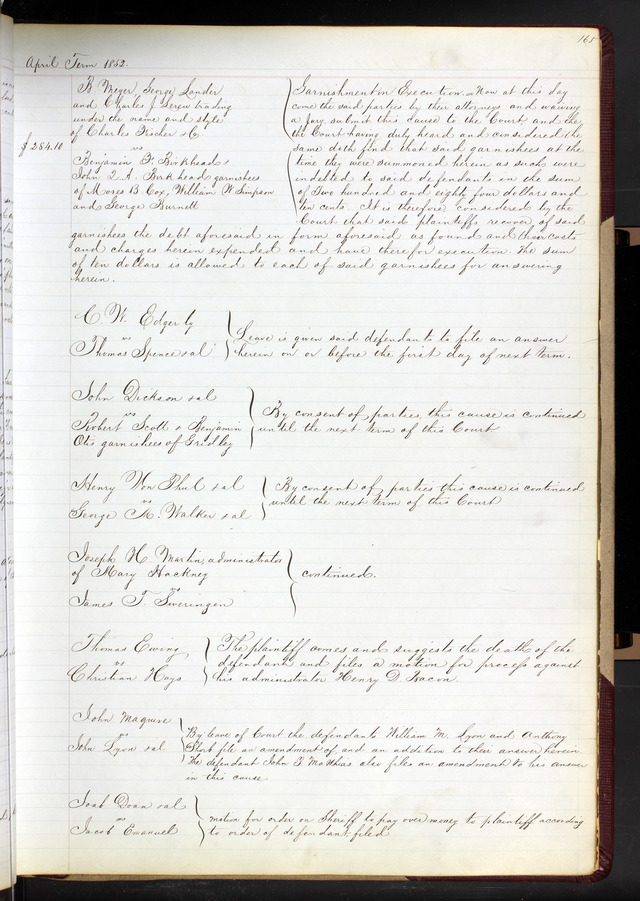 165
April Term 1852.
B. Meyer, George Lander
and Charles J. Serew trading
under the name and style
of Charles Kocher & Co
vs
Benjamin F. Birkhead &
John Q. A. Birkhead garnishees
of Moses B Cox, William W Simpson
and George Burnett
$284.10
Garnishment on Execution. Now at this day
come the said parties by their attorneys and waiving
a Jury, submit this cause to the Court, and the
the Court having duly heard and considered the
same doth find that said garnishees at the
time they were summoned herein as such were
indebted to said defendants in the sum
of Two hundred and eighty four dollars and
ten cents. It is therefore considered by the
Court that said plaintiffs recover of said
garnishees the debt aforesaid in form aforesaid as found and their costs
and charges herein expended and have therefor execution. The sum
of ten dollars is allowed to each of said garnishees for answering
herein.
C. W. Edgerly
vs
Thomas Spence & al
Leave is given said defendants to file an answer
herein on or before the first day of next term.
John Dickson & al
vs
Robert Scott & Benjamin
Otis garnishees of Gridley
By consent of parties, this cause is continued
until the next term of this Court
Henry Von Phul & al
vs
George M. Walker & al
By consent of parties this cause is continued
until the next term of this Court
Joseph H. Martin, administrator
of Mary Hackney
vs
James T. Sweringen
continued.
Thomas Ewing
vs
Christian Hays
The plaintiff comes and suggests the death of the
defendant and files a motion for process against
his administrator Henry D. Bacon.
John Maguire
vs
John Lyon & al
By leave of Court the defendants William M. Lyon and Anthony
Shorb file an amendment of and an addition to their answer herein.
The defendant John T. Mathews also files an amendment to his answer
in this cause
Joab Doan & al
vs
Jacob Emanuel
motion for order on Sheriff to pay over money to plaintiff according
to order of defendant, filed